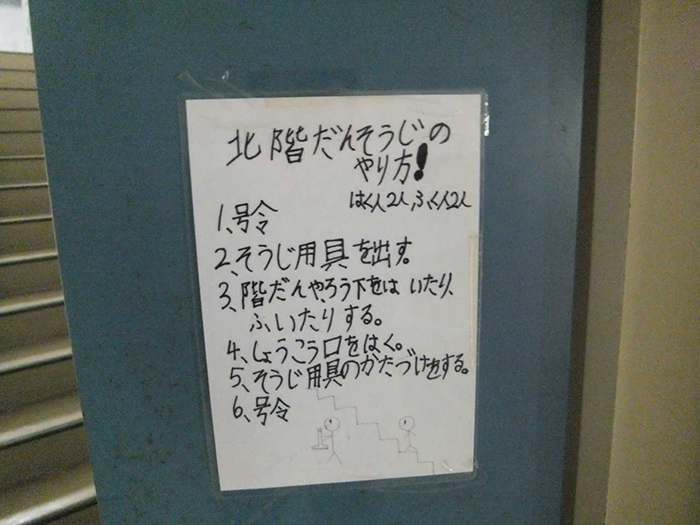 北階だんそうじの
やり方!
はく人2人、ふく人2人
1、号令
2、そうじ用具を出す。
3、階だんやろう下をはいたり、
ふいたりする。
4、しょうこう口をはく。
5、そうじ用具のかたづけをする。
6、号令